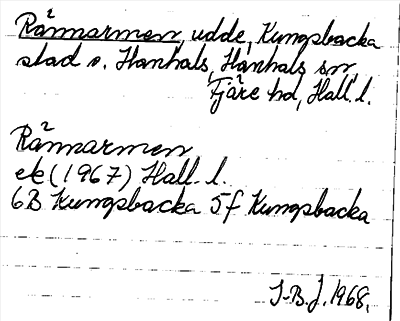 Rånnarmen, udde, Kungsbacka
stad o. Hanhals, Hanhals sn,
Fjäre hd, Hall. l.
Rånnarmen
ek (1967) Hall. l.
6B Kungsbacka 5f Kungsbacka
I-B.J. 1968.